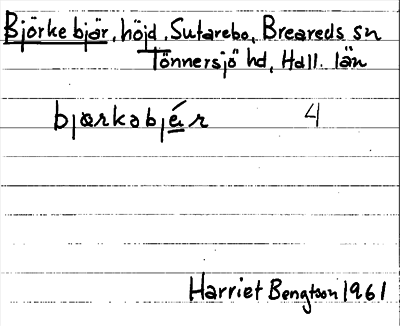 Björke bjär, höjd, Sutarebo, Breareds sn
Tönnersjö hd, Hall. län
bjørkabjér 4
Harriet Bengtson 1961